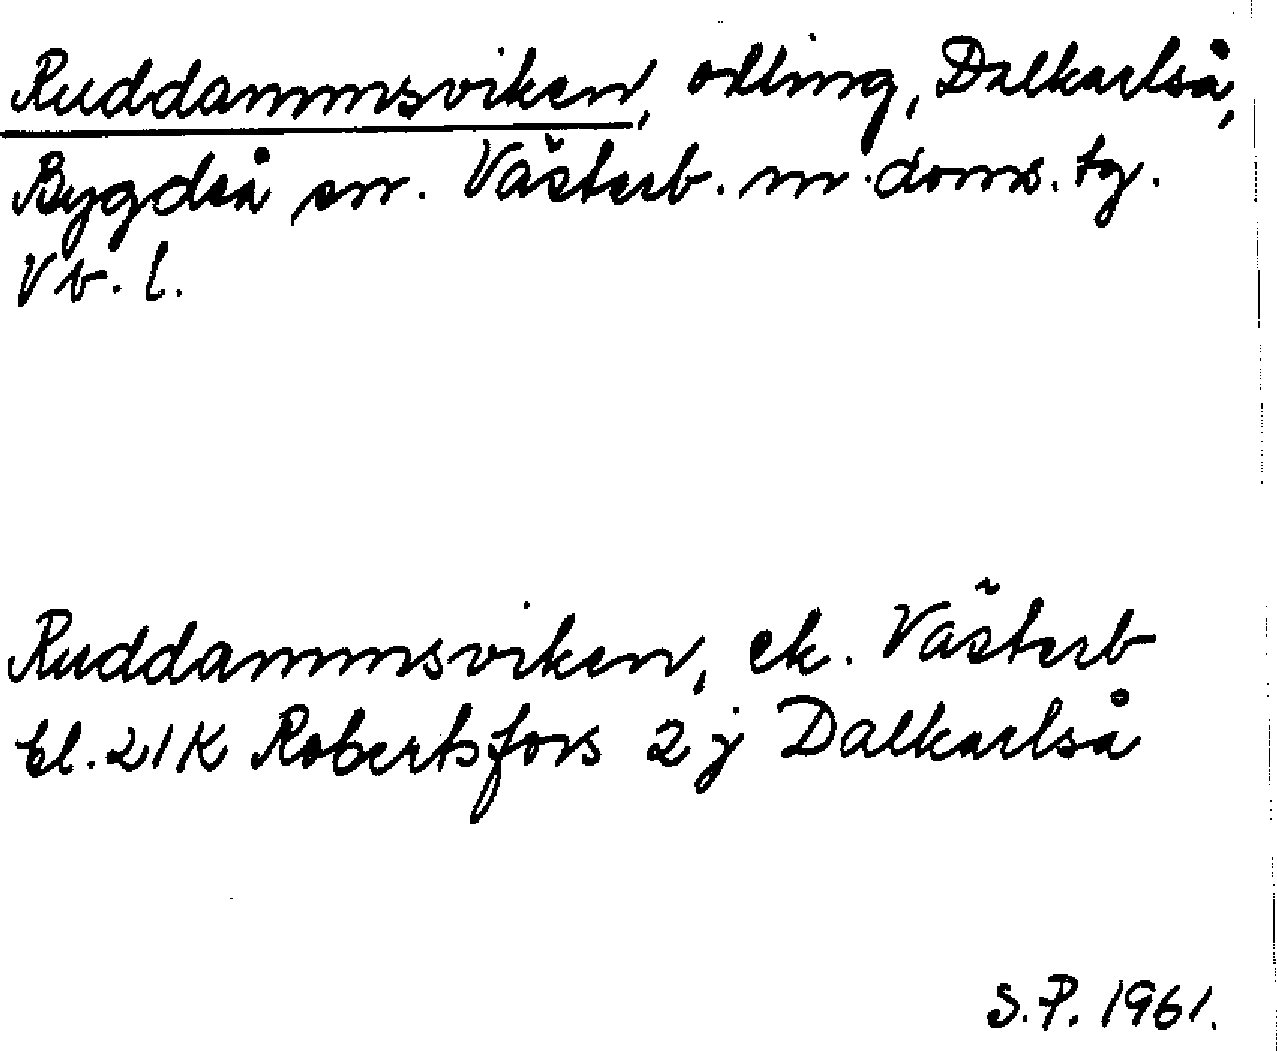 Ruddammsviken, odling, Dalkarlså,
Bygdeå sn. Västerb. m. doms. tg.
Vb. l.
Ruddammsviken, ek. Västerb
bl. 21K Robertsfors 2j Dalkarlså
S.P. 1961.